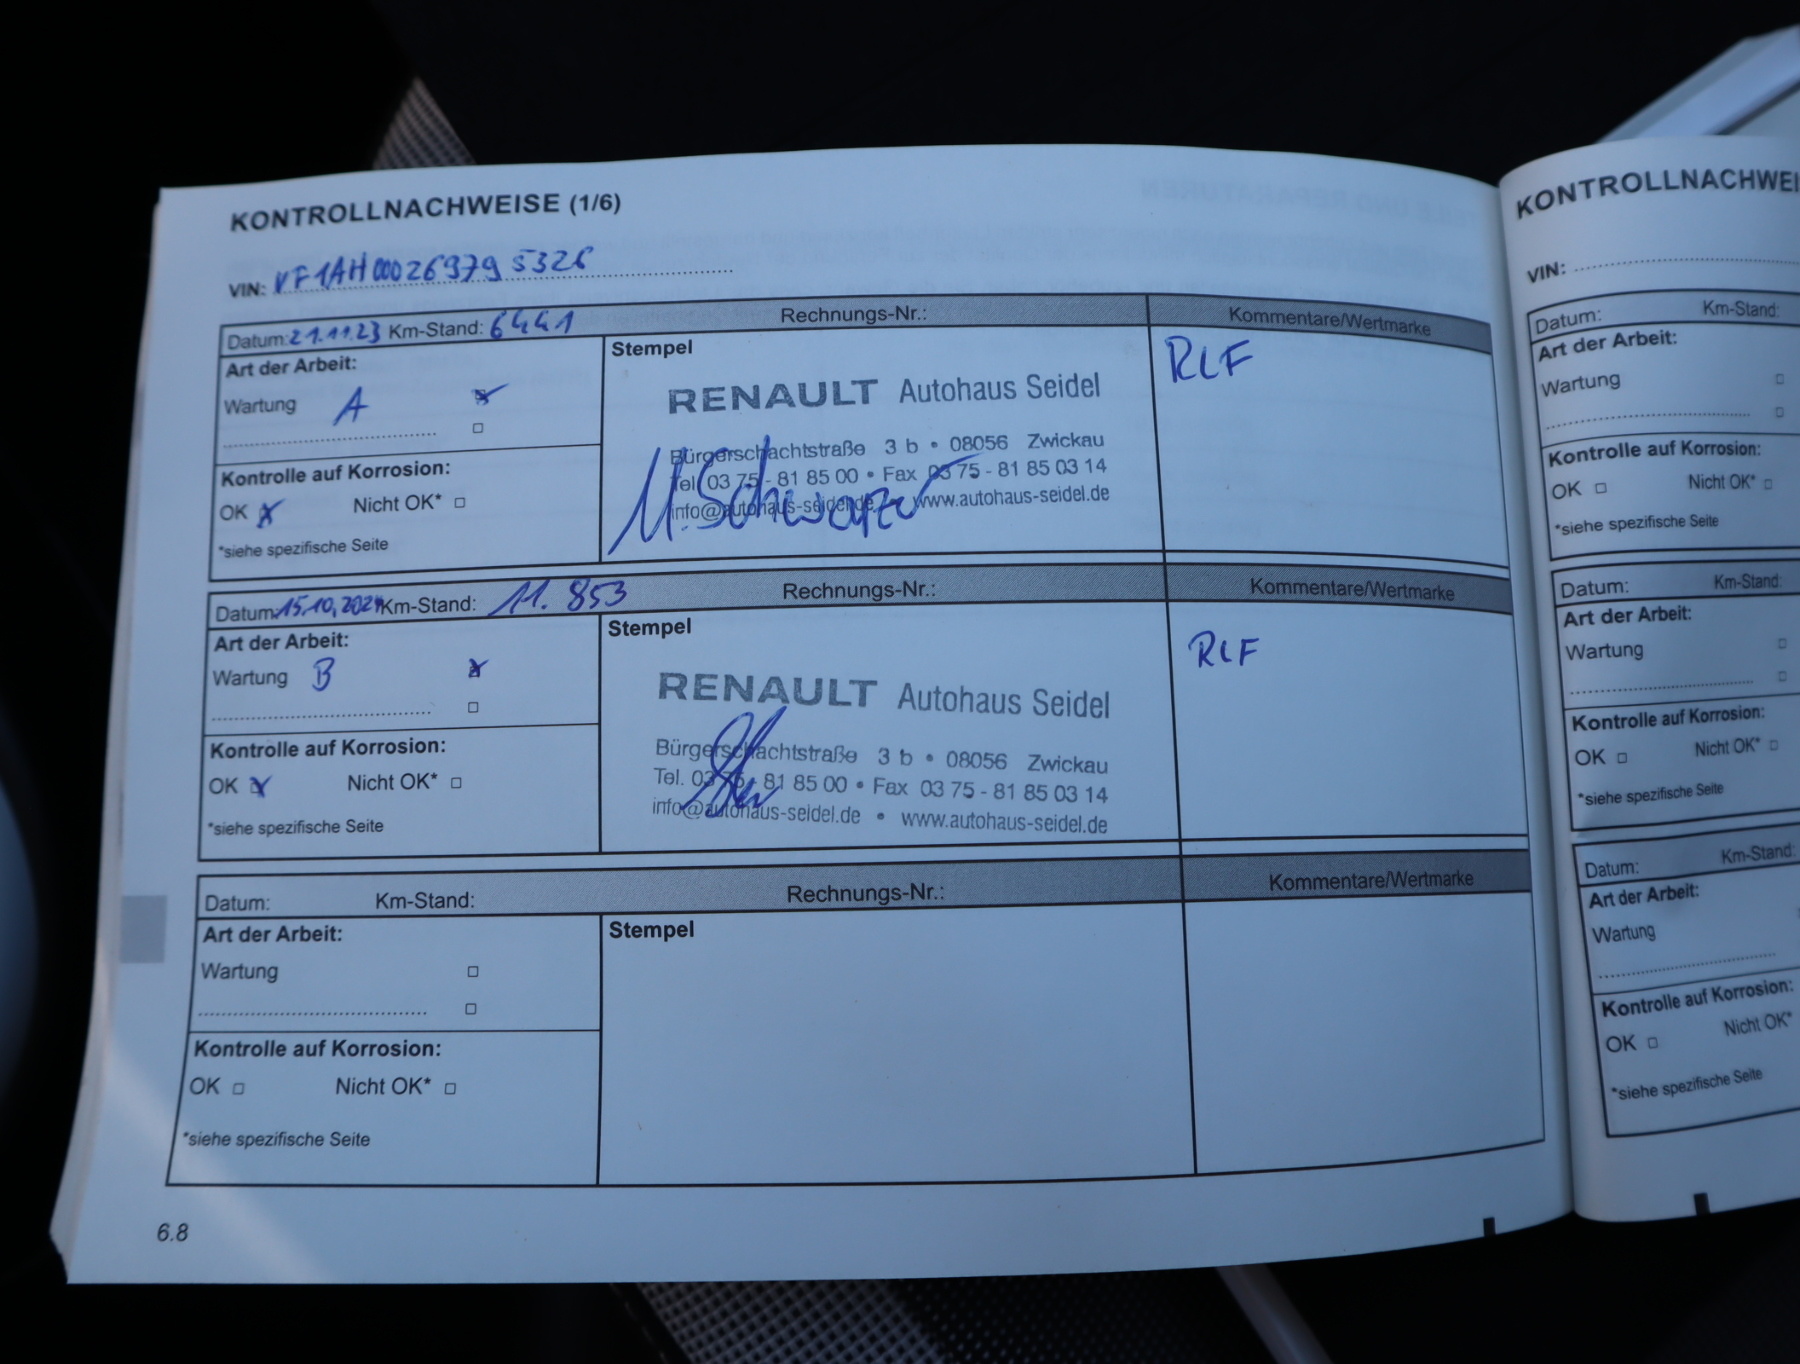 KONTROLLNACHWEISE (1/6)
VIN: VF1AH00026979 5326
Datum: 21.11.23 Km-Stand: 6441 Rechnungs-Nr.: Kommentare/Wertmarke
Art der Arbeit:
Wartung A
Kontrolle auf Korrosion:
OK Nicht OK*
*siehe spezifische Seite
Stempel
RENAULT Autohaus Seidel
Bürgerschachtstraße 3 b • 08056 Zwickau
Tel. 03 75 - 81 85 00 • Fax 03 75 - 81 85 03 14
info@autohaus-seidel.de www.autohaus-seidel.de
M. Schwarzer
RLF
Datum: 15.10.2024 Km-Stand: 11.853 Rechnungs-Nr.: Kommentare/Wertmarke
Art der Arbeit:
Wartung B
Kontrolle auf Korrosion:
OK Nicht OK*
*siehe spezifische Seite
Stempel
RENAULT Autohaus Seidel
Bürgerschachtstraße 3 b • 08056 Zwickau
Tel. 03 75 - 81 85 00 • Fax 03 75 - 81 85 03 14
info@autohaus-seidel.de • www.autohaus-seidel.de
RLF
Datum: Km-Stand: Rechnungs-Nr.: Kommentare/Wertmarke
Art der Arbeit:
Wartung
Kontrolle auf Korrosion:
OK Nicht OK*
*siehe spezifische Seite
Stempel
6.8
KONTROLLNACHWEI
VIN:
Datum: Km-Stand:
Art der Arbeit:
Wartung
Kontrolle auf Korrosion:
OK Nicht OK*
*siehe spezifische Seite
Datum: Km-Stand:
Art der Arbeit:
Wartung
Kontrolle auf Korrosion:
OK Nicht OK*
*siehe spezifische Seite
Datum: Km-Stand:
Art der Arbeit:
Wartung
Kontrolle auf Korrosion:
OK Nicht OK*
*siehe spezifische Seite